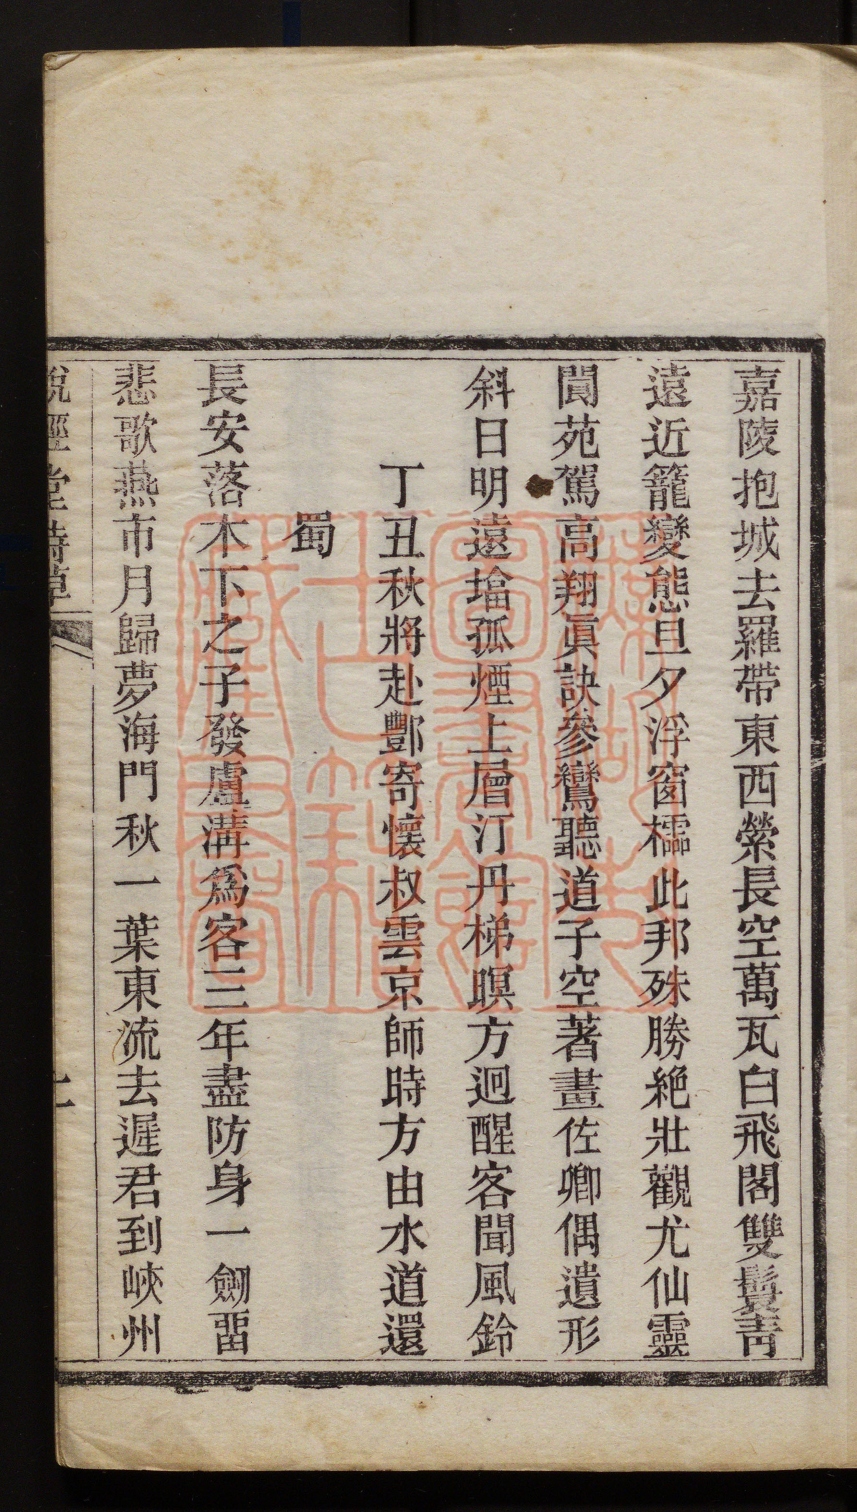 嘉陵抱城去羅帶東西縈長空萬瓦白飛閣雙鬟青
遠近籠變態旦夕浮窗櫺此邦殊勝絕壯觀尤仙靈
閬苑駕高翔眞訣參鸞聽道子空著畫佐卿偶遺形
斜日明遠壋孤煙上層汀丹梯暝方迥醒客聞風鈴
丁丑秋將赴酆寄懷叔雲京師時方由水道還
蜀
長安落木下之子發盧溝爲客三年盡防身一劒畱
悲歌燕市月歸夢海門秋一葉東流去遲君到峽州
說經堂詩草